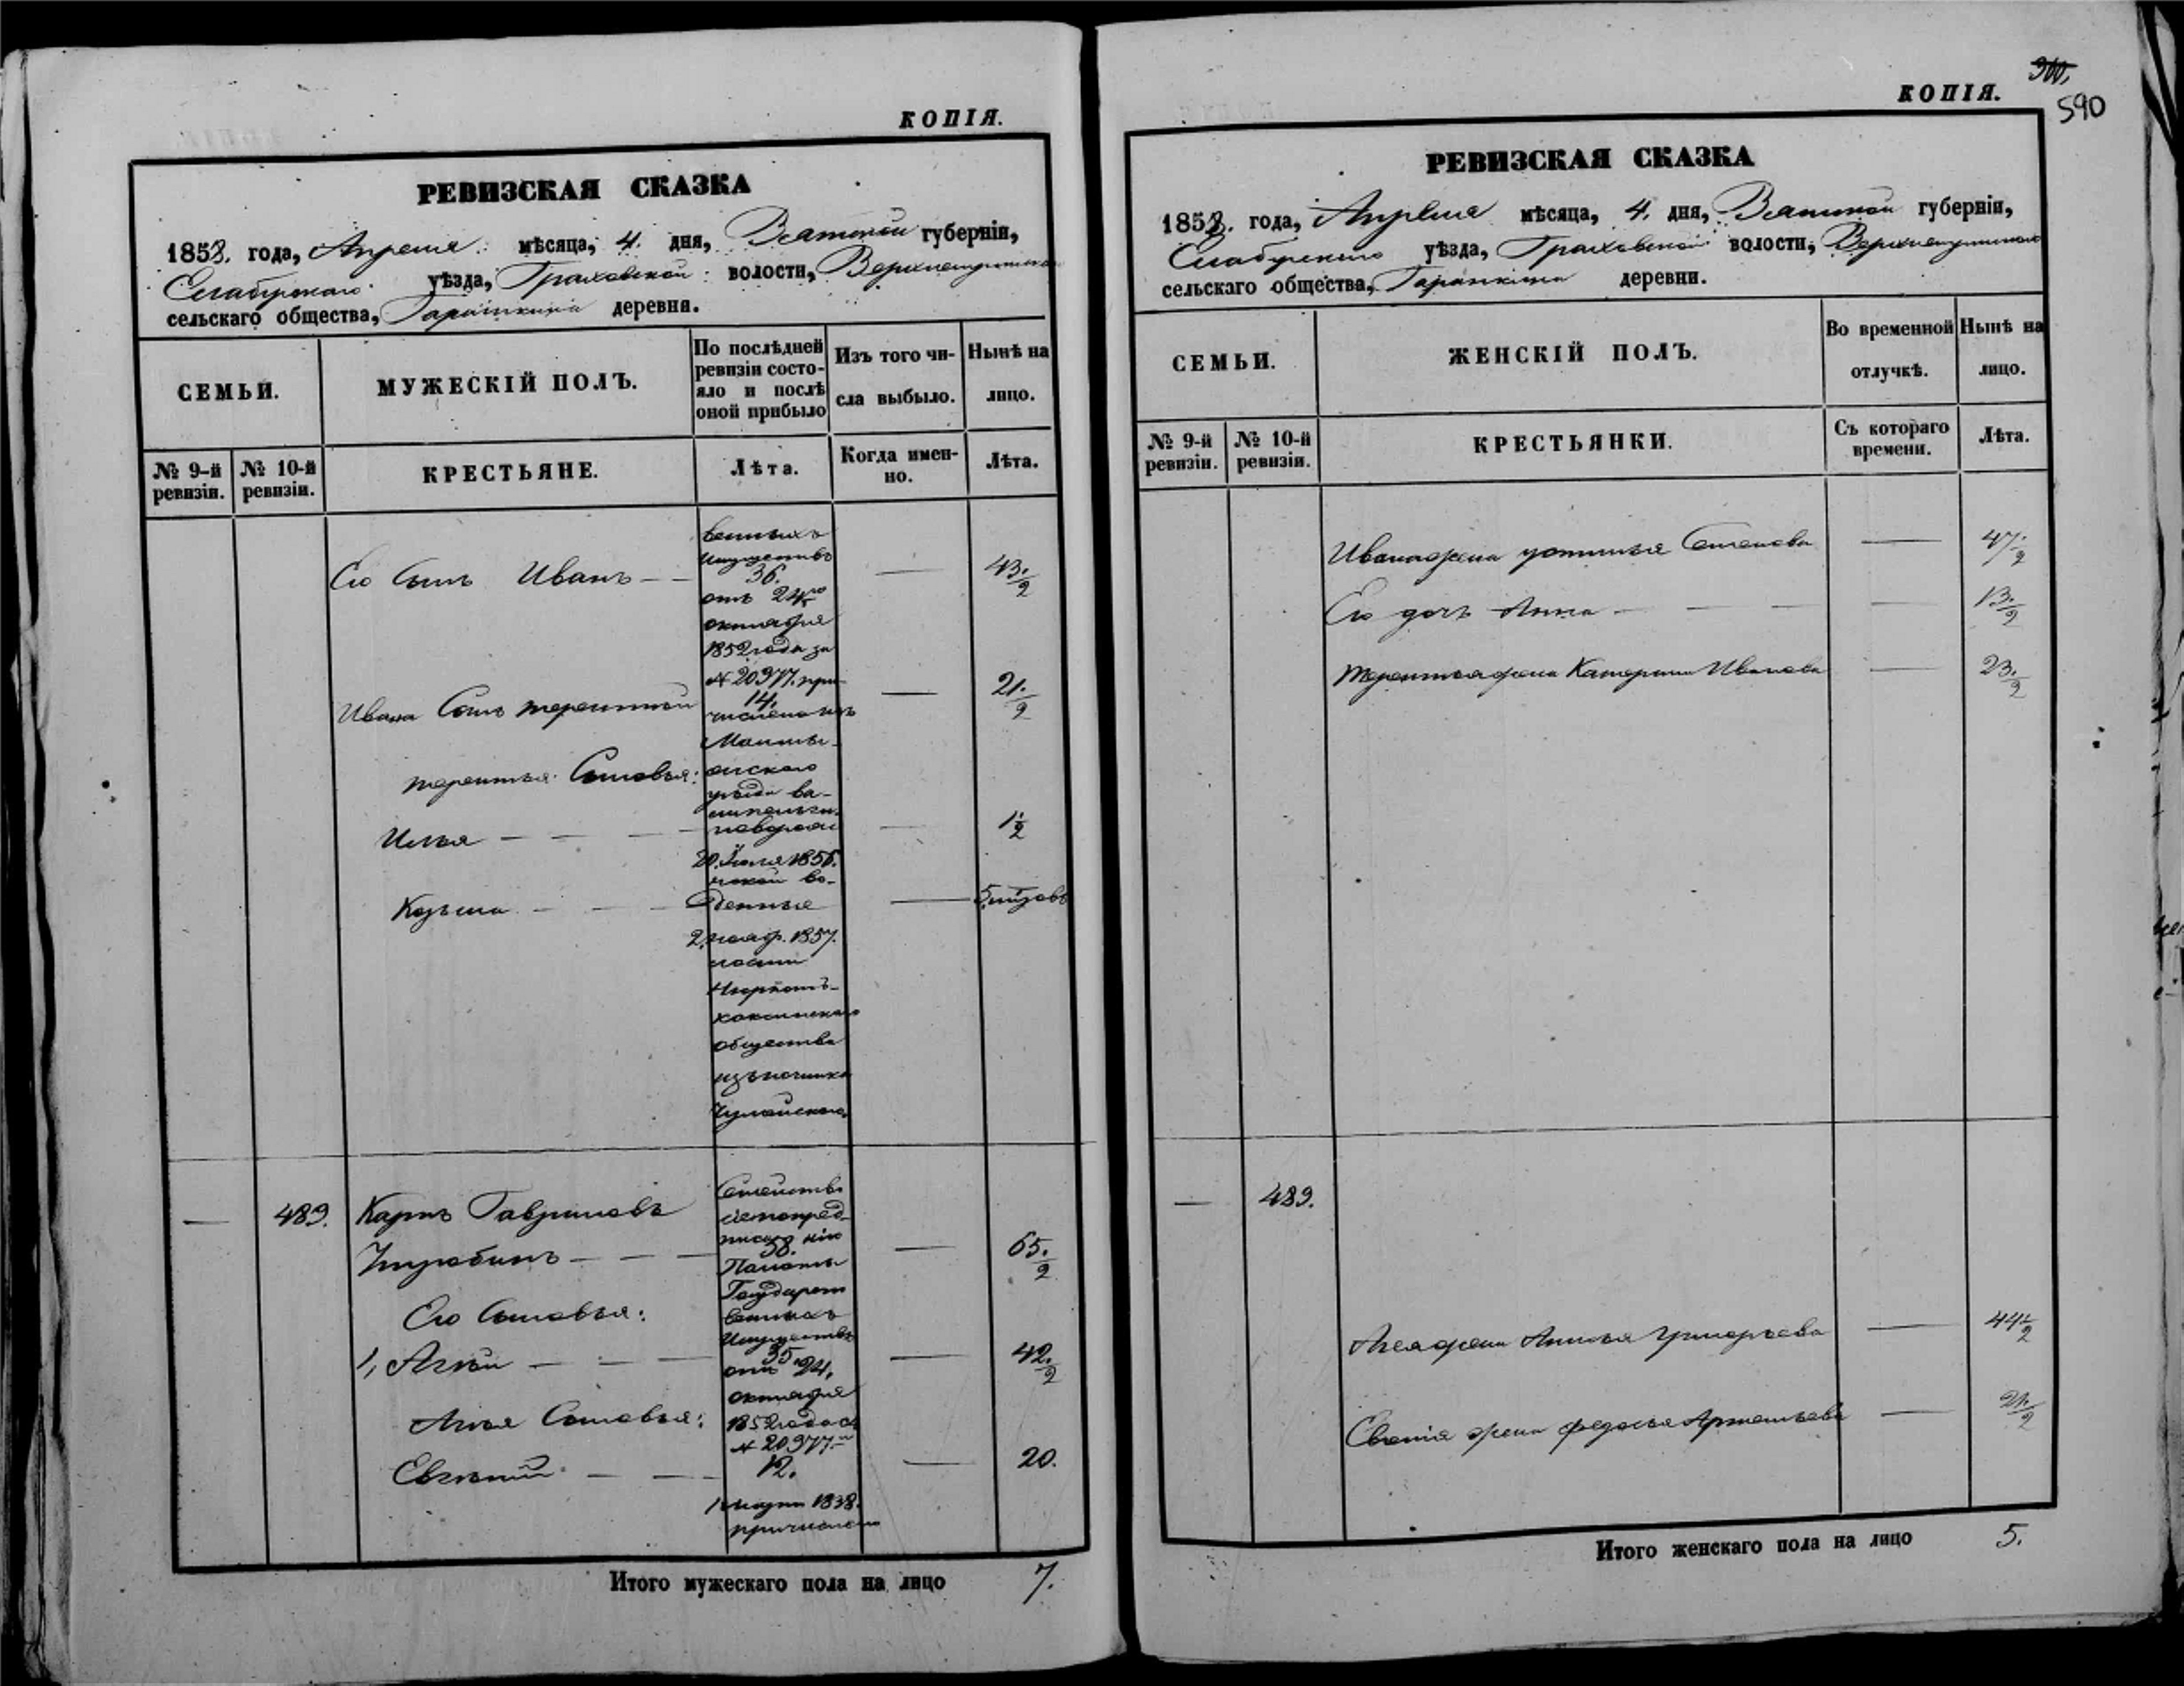 КОПІЯ.
РЕВИЗСКАЯ СКАЗКА
1858. года, Апреля мѣсяца, 4. дня, Вятской губерніи,
Елабужскаго уѣзда, Граховской волости,
сельскаго общества, деревни.
СЕМЬИ.
МУЖЕСКІЙ ПОЛЪ.
По послѣдней ревизіи состояло и послѣ оной прибыло
Изъ того числа выбыло.
Нынѣ на лицо.
№ 9-й ревизіи.
№ 10-й ревизіи.
КРЕСТЬЯНЕ.
Лѣта.
Когда именно.
Лѣта.
венныхъ
имуществъ
Его Сынъ Иванъ — — 36. — 43.½
отъ 24го
октября
1852 года за
№ 20977. при-
Ивана Сынъ Терентей 14. — 21.½
численонъ
Терентья Сыновья:
уѣзда
Илья — — — — 1½
20. Іюля 1856.
ской во-
Козьма — — — 5.
2. нояб. 1857.
лости
общества
изъ починка
— 489. Карпъ Гавриловъ
Семейство
58. — 65.½
Палаты
Государст
Его Сыновья:
венныхъ
Имуществъ
1, Агѣй — — — 35 — 42.½
отъ 24,
октября
Агѣя Сыновья:
1852 года
№ 20977.
Евгеній — — 12. — 20.
1 марта 1838.
причислено
Итого мужескаго пола на лицо 7.
КОПІЯ.
590
РЕВИЗСКАЯ СКАЗКА
1858. года, Апреля мѣсяца, 4. дня, Вятской губерніи,
Елабужскаго уѣзда, Граховской волости,
сельскаго общества, деревни.
СЕМЬИ.
ЖЕНСКІЙ ПОЛЪ.
Во временной отлучкѣ.
Нынѣ на лицо.
№ 9-й ревизіи.
№ 10-й ревизіи.
КРЕСТЬЯНКИ.
Съ котораго времени.
Лѣта.
Ивана жена Устинья Семенова — 47.½
Его дочь Анна — — — — 13.½
Терентья жена Катерина Иванова — 23.½
— 489.
Агея жена Анисья Григорьева — 44½
жена Федосья Артемьева — 21.½
Итого женскаго пола на лицо 5.